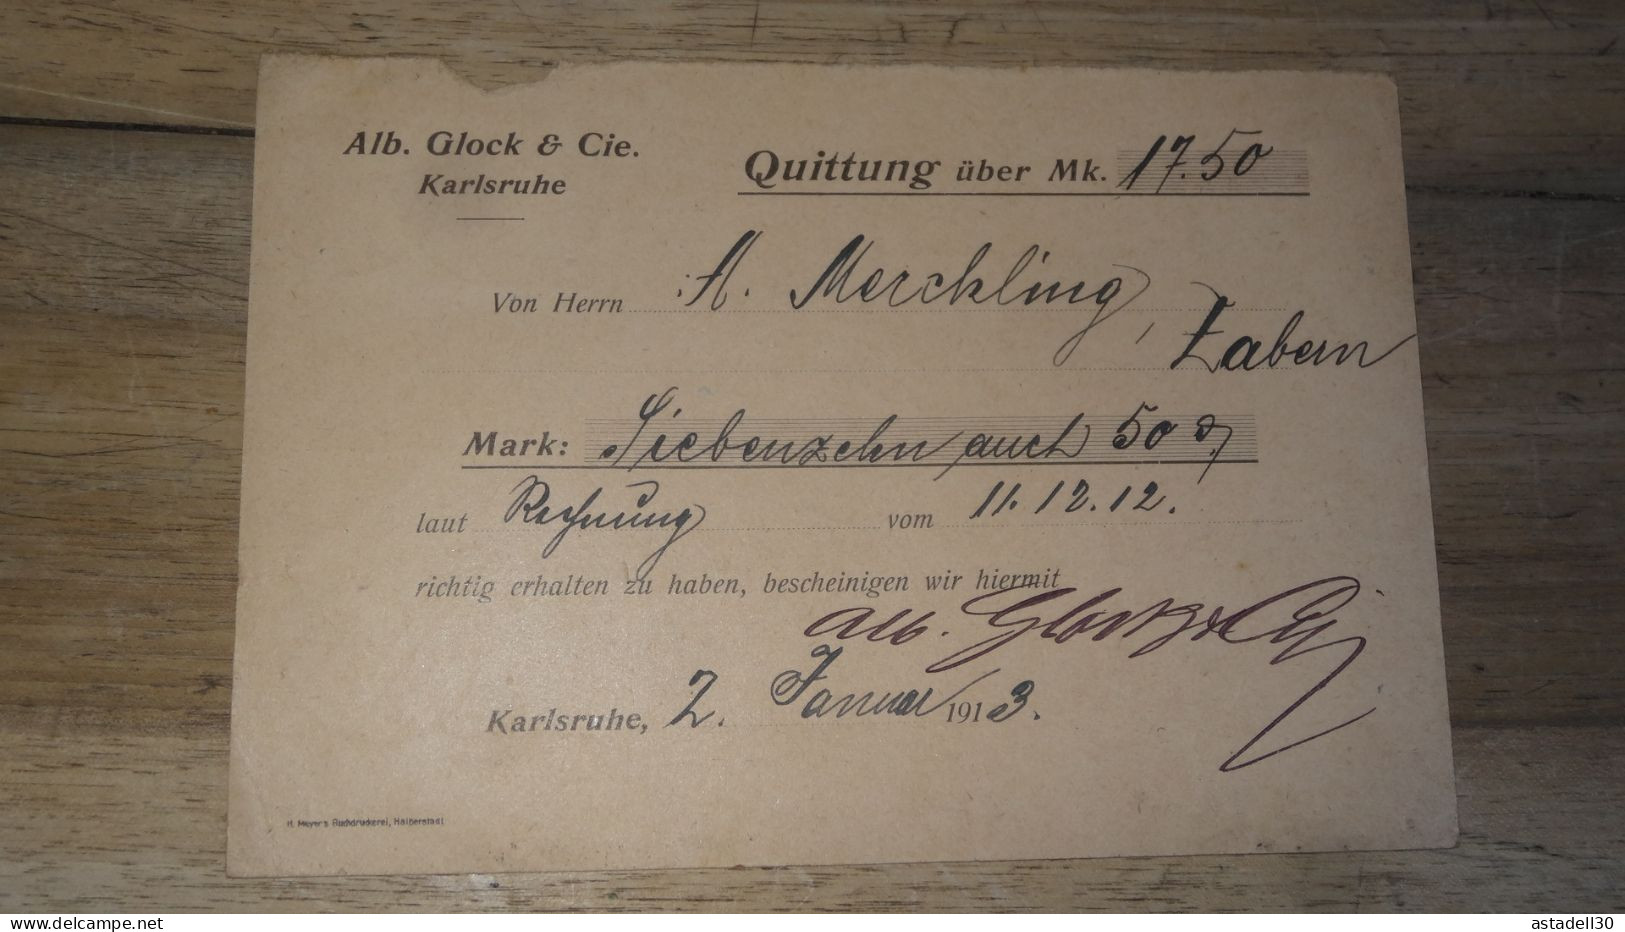 Alb. Glock & Cie.
Karlsruhe
Quittung über Mk. 17.50
Von Herrn A. Merckling,
Zabern
Mark: Siebenzehn auch 50 ₰
laut Rechnung vom 11. 12. 12.
richtig erhalten zu haben, bescheinigen wir hiermit
Alb. Glock & Cie
Karlsruhe, 2. Januar 1913.
H. Meyer's Buchdruckerei, Halberstadt
delcampe.net
astadell30